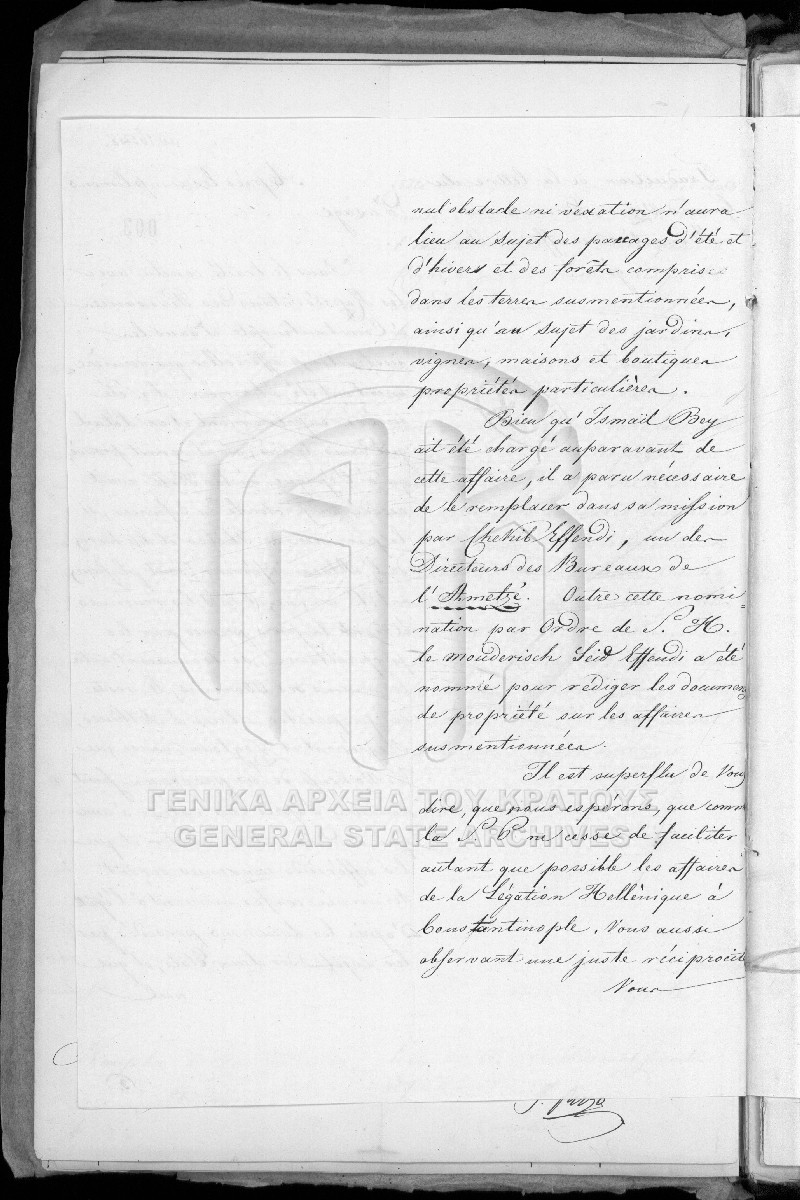 nul obstacle ni véxation n'aura
lieu au sujet des pacages d'été et
d'hivers et des forêts comprises
dans les terres susmentionnées,
ainsi qu'au sujet des jardins,
vignes, maisons et boutiques
propriétés particulières.
Bien qu'Ismaïl Bey
ait été chargé auparavant de
cette affaire, il a paru nécessaire
de le remplacer dans sa mission
par Chekib Effendi, un des
Directeurs des Bureaux de
l'Ametzé. Outre cette nomi-
nation par Ordre de S. H.
le mouderisch Séïd Effendi a été
nommé pour rédiger les documens
de propriété sur les affaires
susmentionnées.
Il est superflu de Vous
dire, que nous espérons, que comme
la S. P. ne cesse de faciliter
autant que possible les affaires
de la Légation Hellénique à
Constantinople, Vous aussi
observant une juste réciprocité
Vous
ΓΕΝΙΚΑ ΑΡΧΕΙΑ ΤΟΥ ΚΡΑΤΟΥΣ
GENERAL STATE ARCHIVES
003